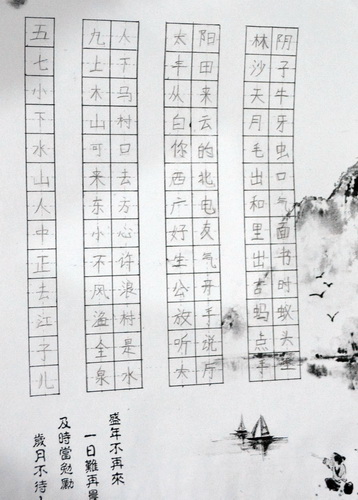 五
七
小
下
水
山
人
中
正
去
江
子
儿
九人
上下
木马
山村
可口
来去
东方
小心
不许
风浪
全是
泉水
太阳
丰田
从来
白云
你的
西北
广电
好友
生气
公开
放手
听说
大厅
林阴
沙子
天牛
月牙
毛虫
出口
和气
里面
出书
蚂蚁
点头
盛年不再來
一日難再晨
及時當勉勵
歲月不待